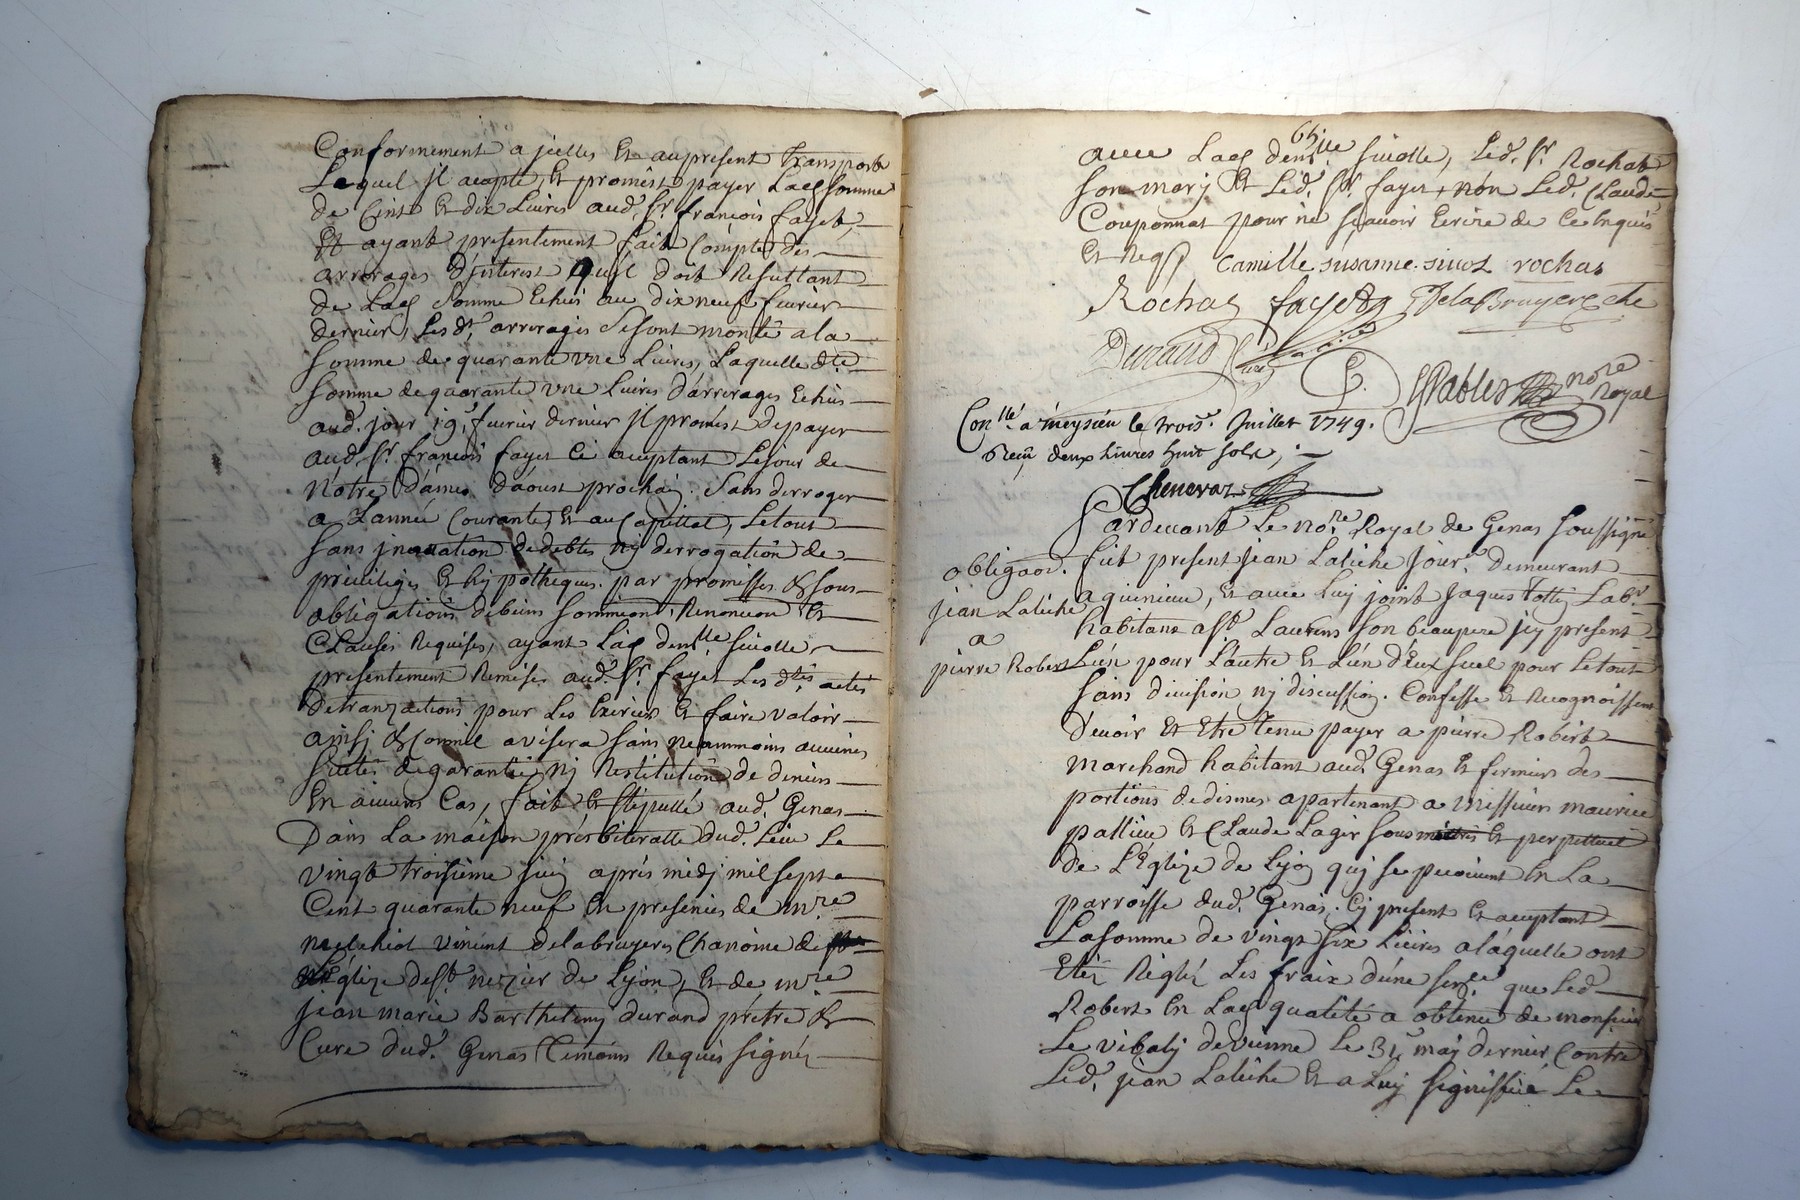 Conformement a jcelles Et au present transport
Lequel Il acepte, Et promest payer Lad somme
de Cent Et dix Livres aud. Sr. francois fayet,
Et ayant presentement fait Compte des
arrerages D'jnterest quil doit Resultant
de Lad Somme Echus au dix neuf fevrier
dernier, Les dt. arrerages Se sont monté a la
Somme de quarante une Livres, Laquelle dte
Somme de quarante une livres d'arrerages Echus
aud. jour 19. fevrier dernier jl promest de payer
aud. Sr. francois fayet Ci aceptant Le jour de
Notre Dame d'aoust prochaj. Sans derroger
a Lannée Courante, Et au Capittal, Le tout
Sans jnovation de debtes nj derrogation de
privileges Et hypotheques. par promesses & sous
obligations de biens Soumission, Renonciaon Et
Clauses Requises, ayant Lad demlle sivolle
presentement Remises aud. Sr. fayet Les dtes actes
de tranzactions pour Les Exercer Et faire valoir
ainsj & Comme avisera sans neammoins aucunes
Suites de garantie, nj Restitution de deniers
En aucuns Cas, fait Et stipullé aud. Genas
Dans La maison presbiteralle dud. Lieu Le
vingt troisieme juin après midj mil sept
Cent quarante neuf En presences de mre
melchiot vincent delabruyere Chanoine de
L'Eglize de St. nezier de Lyon, Et de mre
jean marie Barthelemy durand prêtre &
Curé dud. Genas temoins Requis signéz
65.
avec Lad demlle sivolle, Led. Sr. Rochat
Son marj Et Led. Sr. fayet, non Led. Claude
Couponnat pour ne sçavoir Ecrire de Ce Enquis
Et Reqs
Camille susanne sivoz rochas
Rochas fayet Delabruyere che
Durand Curé
GPables nore Royal
Conllé a meysieu le trois. Juillet 1749.
Reçu deux Livres huit sols,
Chenevaz
Pardevant Le nore Royal de Genas soussigne
obligaon.
fut present jean Laliche jour. demeurant
jean Laliche
a
pierre Robert
a quinieu, Et avec Luy joint Jaques Lab.
habitant a St. Laurens son beaupere jcy present
L'un pour L'autre Et L'un d'Eux seul pour Le tout
sans division nj discussion. Confesse Et Recognoissent
devoir Et Etre tenu payer a pierre Robert
marchand habitant aud. Genas Et fermier des
portions de dismes apartenant a messieurs maurice
pallieu Et Claude Lager sous Et perpettuel
de L'Eglize de Lyon quj se percoivent En La
parroisse dud. Genas. Cy present Et aceptant
La somme de vingt six Livres a laquelle ont
Eté Réglés Les fraix d'une sence que Led
Robert En Lad qualité a obtenue de monsieur
Le vibally de vienne Le 31 may dernier Contre
Led. jean Laliche Et a Luy signiffiée Le